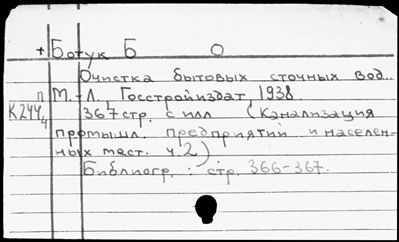 + Ботук Б О
Очистка бытовых сточных вод...
П М.-Л., Госстройиздат, 1938.
К244₄ 367 стр. с илл (Канализация
промышл. предприятий и населен-
ных мест. ч.2)
Библиогр.: стр. 366-367.